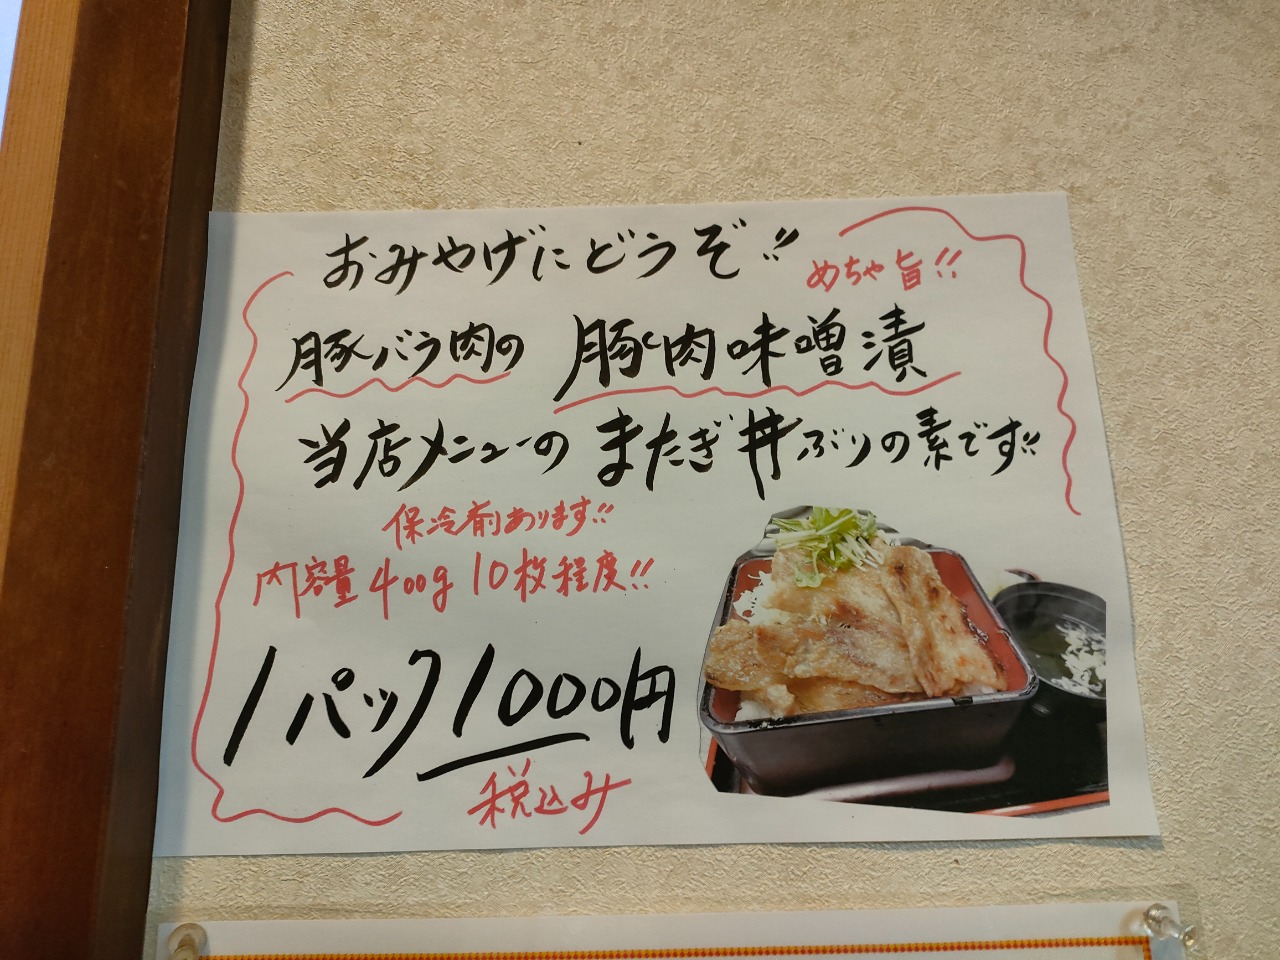 おみやげにどうぞ!!
めちゃ旨!!
豚バラ肉の 豚肉味噌漬
当店メニューの またぎ丼ぶりの素です!!
保冷剤あります!!
内容量 400g 10枚程度!!
1パック1000円
税込み